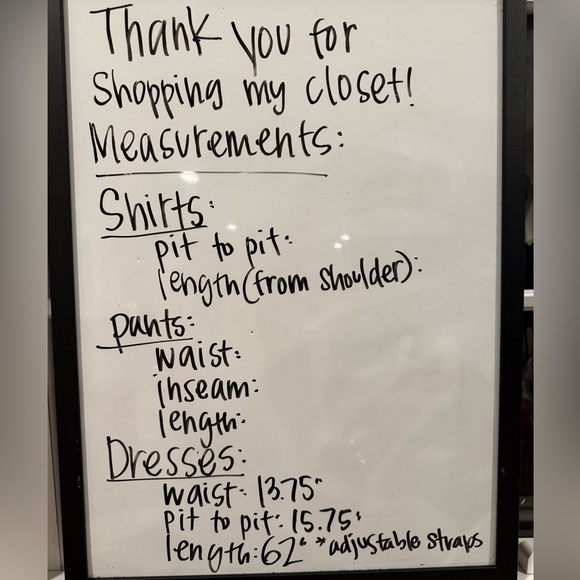 Thank you for
Shopping my closet!
Measurements:
Shirts:
pit to pit:
length (from shoulder):
pants:
waist:
inseam:
length:
Dresses:
waist: 13.75"
pit to pit: 15.75"
length: 62" *adjustable straps